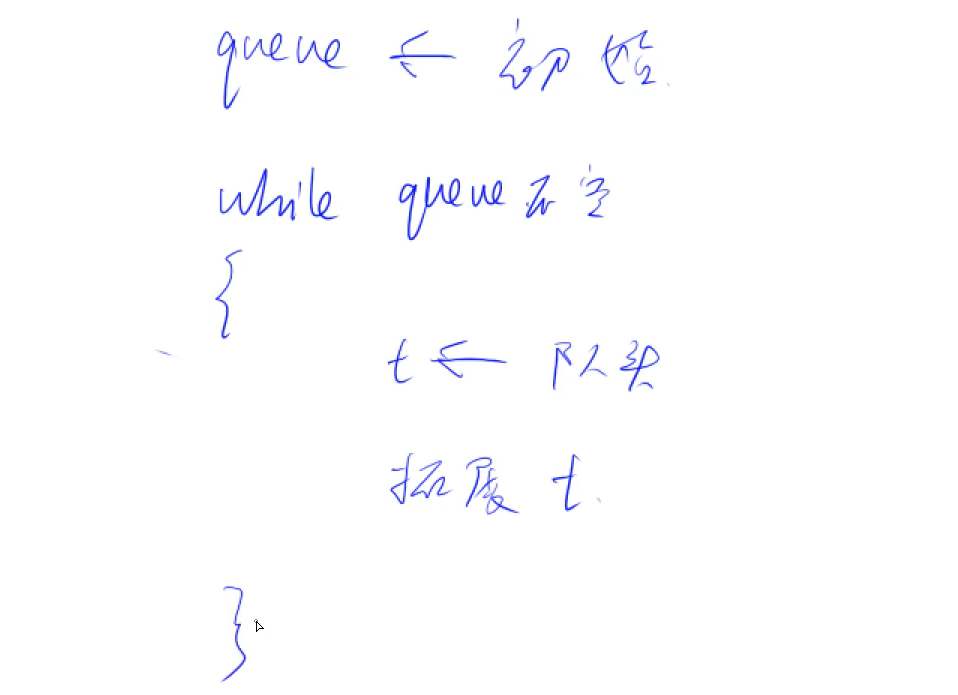 queue ← 初始
while queue不空
{
t ← 队头
拓展 t
}